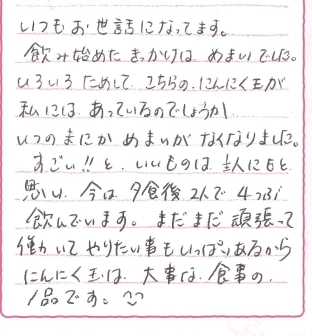 いつもお世話になってます。
飲み始めたきっかけは めまいでした。
いろいろためして、こちらの、にんにく玉が
私には、あっているのでしょうか、
いつのまにか めまいが なくなりました。
すごい!!と、いいものは、主人にもと
思い、今は、夕食後、2人で 4つぶ
飲んでいます。まだまだ 頑張って
働いて やりたい事も いっぱいあるから
にんにく玉は、大事な、食事の、
1品です。